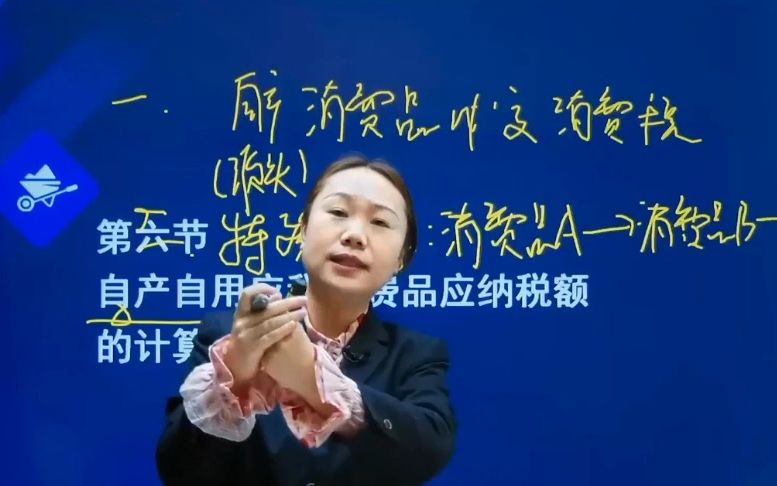 一. 自产消费品必交消费税
(源头)
第六节
二 特殊 : 消费品A→消费品B
自产自用应 费品应纳税额
的计算